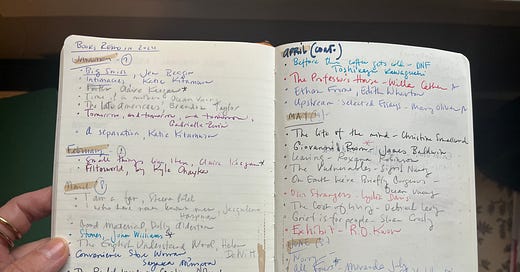 Books Read in 2024
January
Big Swiss, Jen Beagin
Intimacies, Katie Kitamura
Foster, Claire Keegan *
Time is a mother, Ocean Vuong
The late americans, Brandon Taylor
Tomorrow, and tomorrow, and tomorrow,
Gabrielle Zevin
A separation, Katie Kitamura
February
Small things like these, Claire Keegan *
Filterworld, by Kyle Chayka
March
I am a fan, Sheena Patel
I who have never known men, Jacqueline
Harpman
Good Material, Dolly Alderton
Stoner, John Williams *
The English Understand Wool, Helen
DeWitt
Convenience Store Woman
Sayaka Murata
April (cont.)
Before the coffee gets cold - DNF
Toshikazu Kawaguchi
The Professor's House - Willa Cather
Ethan Frome, Edith Wharton
Upstream: Selected Essays - Mary Oliver
May
The life of the mind - Christine Smallwood
Giovanni's Room, James Baldwin
Leaving - Roxana Robinson
The Vulnerables - Sigrid Nunez
On Earth We're Briefly Gorgeous
Ocean Vuong
Our Strangers - Lydia Davis
The Cost of living - Deborah Levy
Grief is for people - Sloane Crosley
Exhibit - R.O. Kwon
June
All Fours, Miranda July